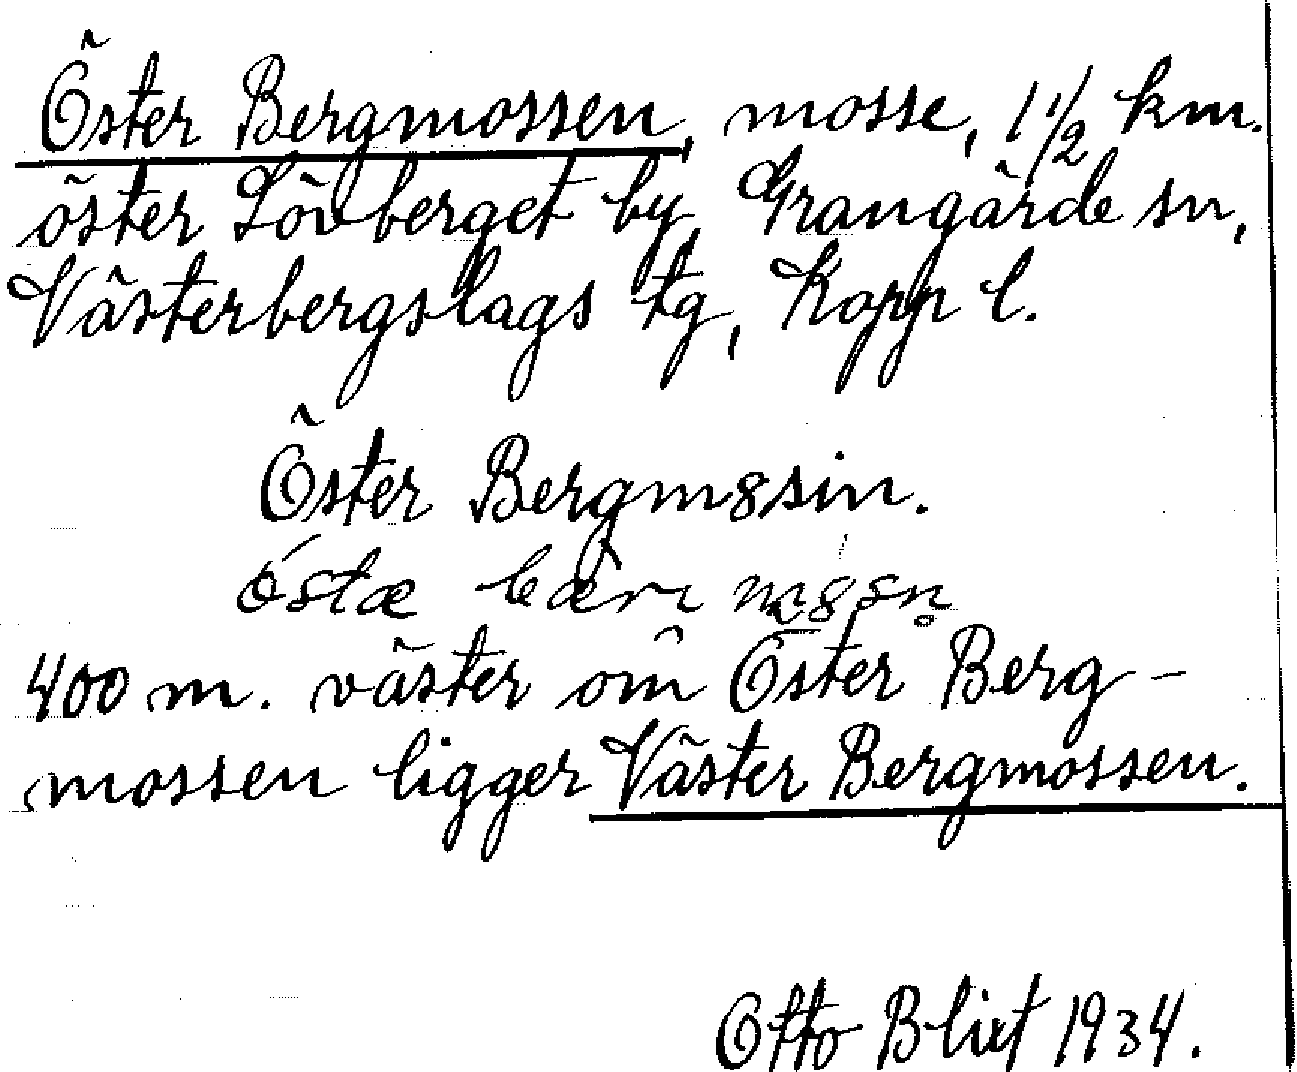 Öster Bergmossen, mosse, 1 1/2 km.
öster Lövberget by, Grangärde sn,
Västerbergslags tg, Kopp l.
Öster Bergm8sin.
400 m. väster om Öster Berg-
mossen ligger Väster Bergmossen.
Otto Blixt 1934.